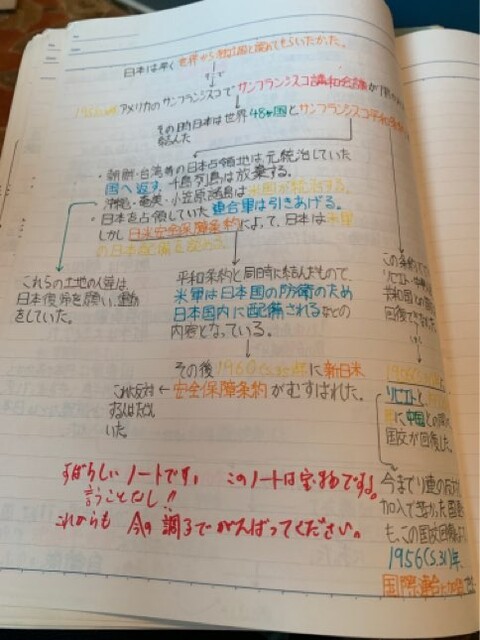 日本は早く世界から独立国と認めてもらいたかった。
アメリカのサンフランシスコでサンフランシスコ講和会議が
その時日本は世界48ヶ国とサンフランシスコ平和条約
結んだ
・朝鮮・台湾等の日本占領地は元統治していた
国へ返す。千島列島は放棄する。
沖縄・奄美・小笠原諸島は米国が統治する。
・日本を占領していた連合軍は引きあげる。
しかし日米安全保障条約によって、日本は米軍
の日本配備を認めた。
これらの土地の人達は
日本復帰を願い、運動
をしていた。
平和条約と同日に結んだもので、
米軍は日本国の防衛のため
日本国内に配備されるなどの
内容となっている。
この条約で
共和国との
その後1960(S.35)年に新日米
安全保障条約がむすばれた。
これに反対
する人はたたかって
いた。
ソビエトと
に中国との間の
国交が回復した。
今までソ連の反対
加入できなかった国連
も、この国交回復により
1956(S.31)年、
国際連合に加盟
すばらしいノートです。 このノートは宝物ですよ。
言うことなし!!
これからも 今の調子でがんばってください。